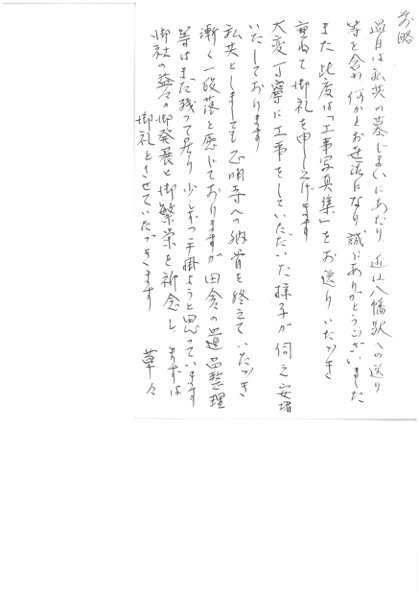 前略
過日は私共の墓じまいにあたり 近江八幡駅への送り
等を含め 何かとお世話になり 誠にありがとうございました
また 此度は「工事写真集」をお送りいただき
重ねて御礼を申し上げます
大変丁寧に工事をしていただいた様子が伺え安堵
いたしております
私共としましても 正明寺への納骨を終えていただき
漸く一段落と感じておりますが 田舎の遺品整理
等はまだ残って居り 少しずつ手掛ようと思っています
御社の益々の御発展と御繁栄を祈念し まずは
御礼とさせていただきます
草々